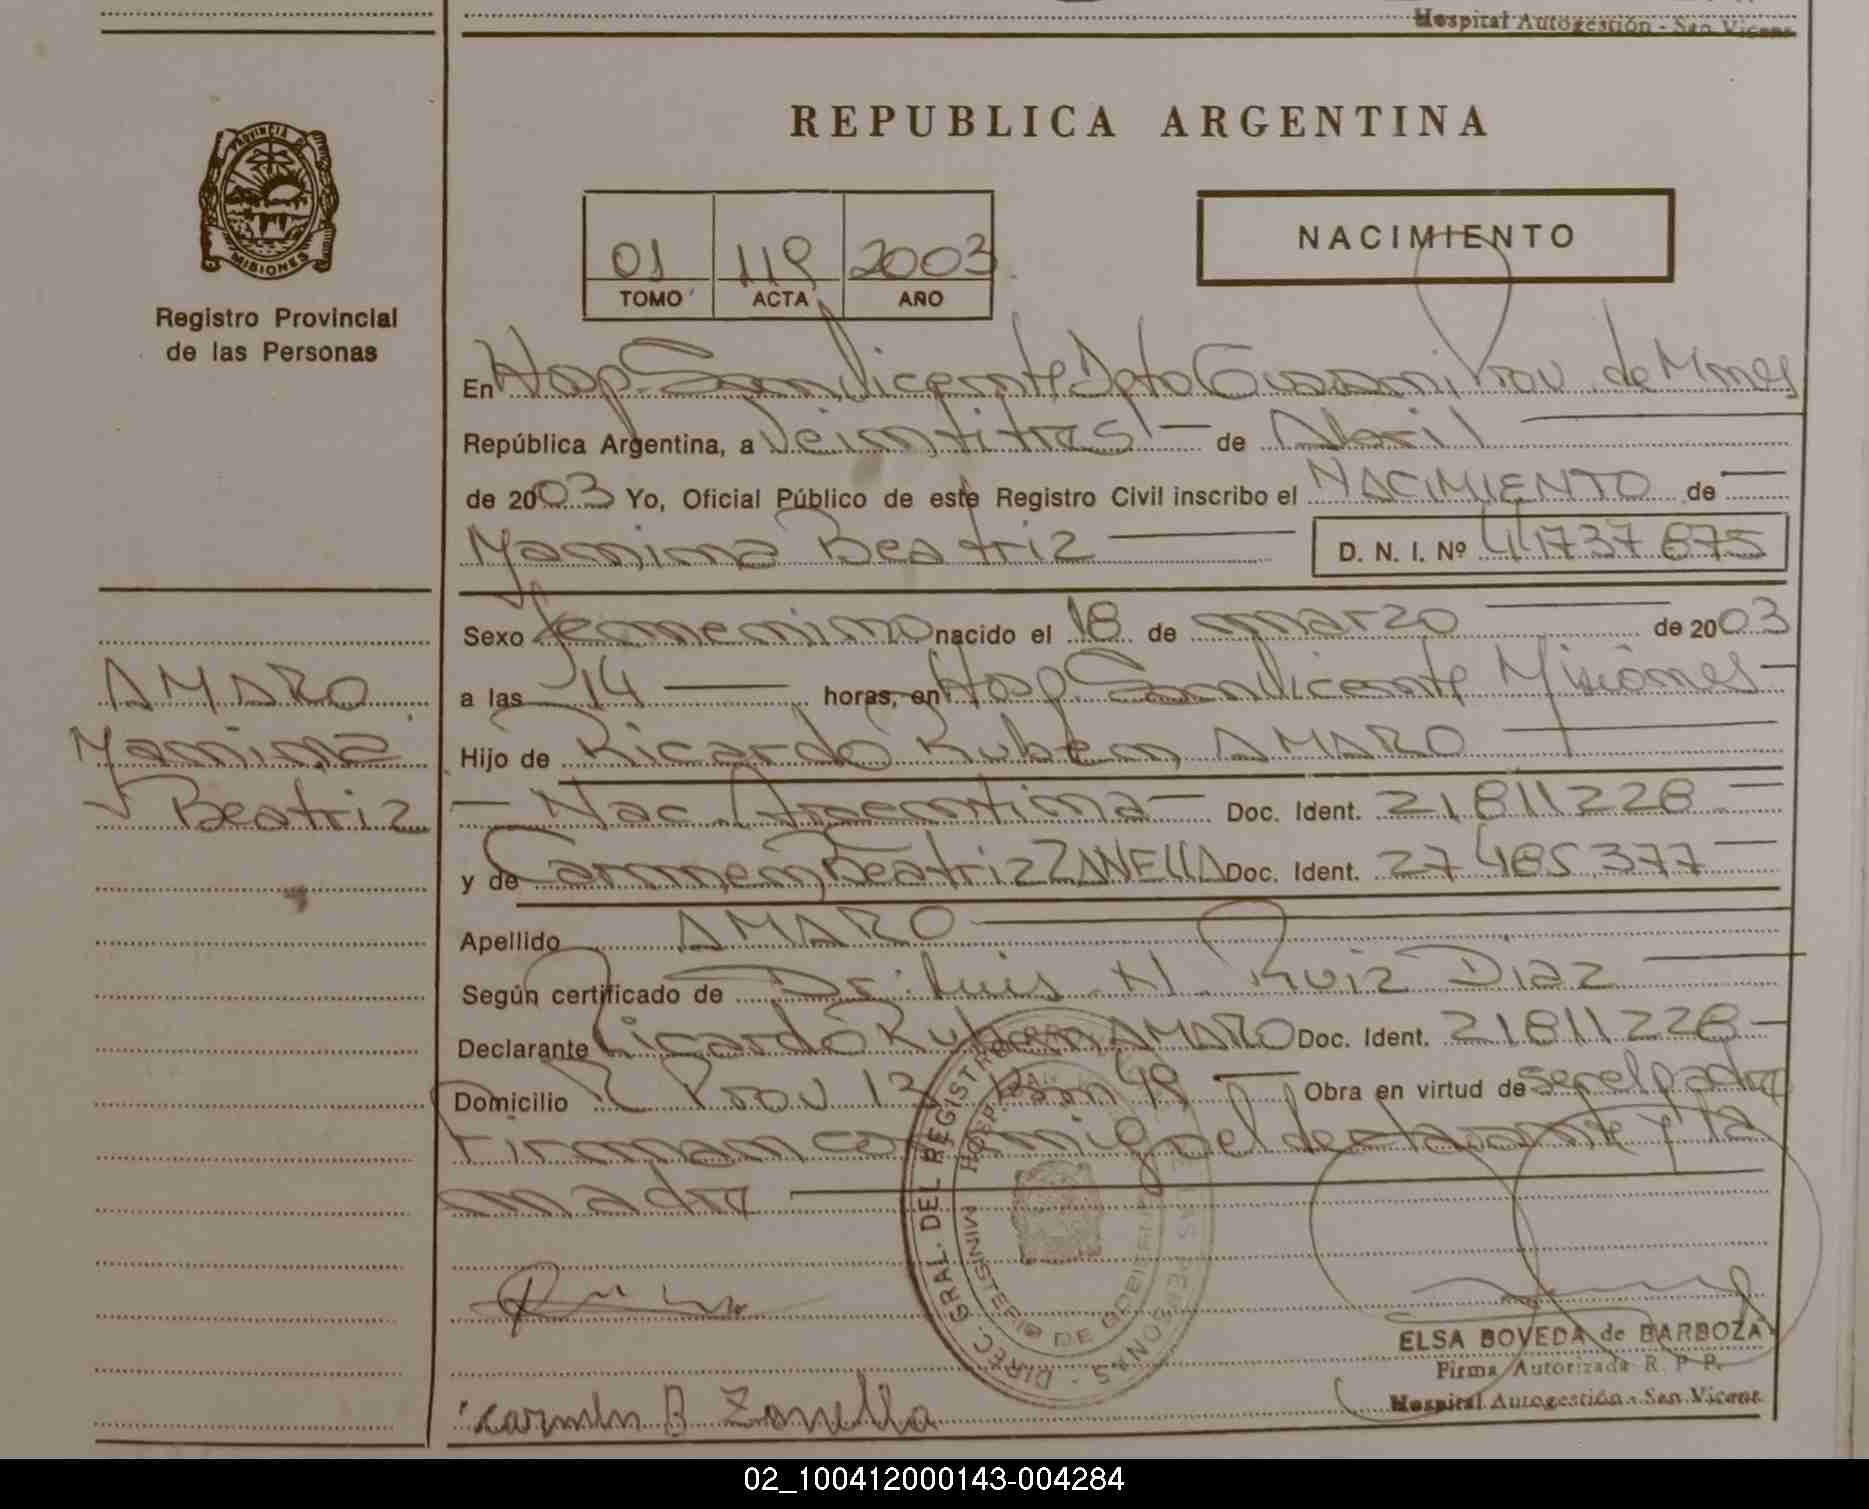 Hospital Autogestión - San Vicente
PROVINCIA DE
MISIONES
Registro Provincial
de las Personas
REPUBLICA ARGENTINA
01 119 2003
TOMO ACTA AÑO
NACIMIENTO
En Hosp. San Vicente Dpto Guarani Prov. de Mnes
República Argentina, a Veintitres de Abril
de 2003 Yo, Oficial Público de este Registro Civil inscribo el NACIMIENTO de
Yanina Beatriz D. N. I. Nº 44737875
Sexo femenino nacido el 18 de marzo de 2003
a las 14 horas, en Hosp San Vicente Misiones
Hijo de Ricardo Ruben AMARO
Nac. Argentina Doc. Ident. 21811228
y de Carmen Beatriz ZANELLA Doc. Ident. 27485377
Apellido AMARO
Según certificado de Dr. Luis N. Ruiz Diaz
Declarante Ricardo Ruben AMARO Doc. Ident. 21811228
Domicilio R Prov 13 Km 49 Obra en virtud de ser el padre
Firman conmigo el declarante y la
madre
AMARO
Yanina
Beatriz
DIREC. GRAL. DEL REGISTRO DE LAS PERSONAS
MINISTERIO DE GOBIERNO
ELSA BOVEDA de BARBOZA
Firma Autorizada R. P. P.
Hospital Autogestión - San Vicente
Carmen B Zanella
02_100412000143-004284